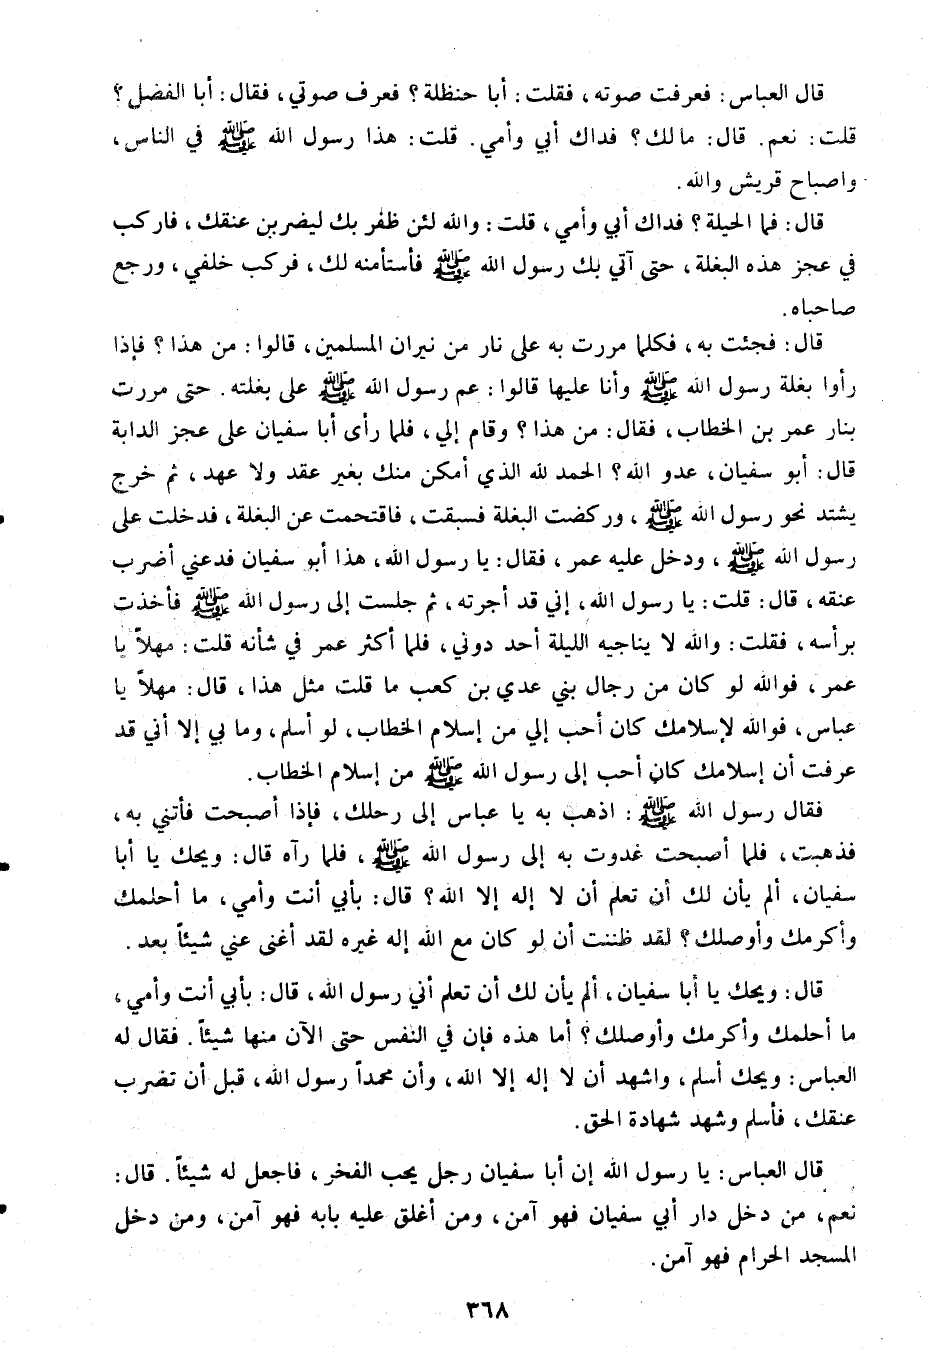 قال العباس: فعرفت صوته، فقلت: أبا حنظلة؟ فعرف صوتي، فقال: أبا الفضل؟
قلت: نعم. قال: مالك؟ فداك أبي وأمي. قلت: هذا رسول الله ﷺ في الناس،
واصباح قريش والله.
قال: فما الحيلة؟ فداك أبي وأمي، قلت: والله لئن ظفر بك ليضربن عنقك، فاركب
في عجز هذه البغلة، حتى آتي بك رسول الله ﷺ فأستأمنه لك، فركب خلفي، ورجع
صاحباه.
قال: فجئت به، فكلما مررت به على نار من نيران المسلمين، قالوا: من هذا؟ فإذا
رأوا بغلة رسول الله ﷺ وأنا عليها قالوا: عم رسول الله ﷺ على بغلته. حتى مررت
بنار عمر بن الخطاب، فقال: من هذا؟ وقام إلي، فلما رأى أبا سفيان على عجز الدابة
قال: أبو سفيان، عدو الله؟ الحمد لله الذي أمكن منك بغير عقد ولا عهد، ثم خرج
يشتد نحو رسول الله ﷺ، وركضت البغلة فسبقت، فاقتحمت عن البغلة، فدخلت على
رسول الله ﷺ، ودخل عليه عمر، فقال: يا رسول الله، هذا أبو سفيان فدعني أضرب
عنقه، قال: قلت: يا رسول الله، إني قد أجرته، ثم جلست إلى رسول الله ﷺ فأخذت
برأسه، فقلت: والله لا يناجيه الليلة أحد دوني، فلما أكثر عمر في شأنه قلت: مهلاً يا
عمر، فوالله لو كان من رجال بني عدي بن كعب ما قلت مثل هذا، قال: مهلاً يا
عباس، فوالله لإسلامك كان أحب إلي من إسلام الخطاب، لو أسلم، وما بي إلا أني قد
عرفت أن إسلامك كان أحب إلى رسول الله ﷺ من إسلام الخطاب.
فقال رسول الله ﷺ: اذهب به يا عباس إلى رحلك، فإذا أصبحت فأتني به،
فذهبت، فلما أصبحت غدوت به إلى رسول الله ﷺ، فلما رآه قال: ويحك يا أبا
سفيان، ألم يأن لك أن تعلم أن لا إله إلا الله؟ قال: بأبي أنت وأمي، ما أحلمك
وأكرمك وأوصلك؟ لقد ظننت أن لو كان مع الله إله غيره لقد أغنى عني شيئاً بعد.
قال: ويحك يا أبا سفيان، ألم يأن لك أن تعلم أني رسول الله، قال: بأبي أنت وأمي،
ما أحلمك وأكرمك وأوصلك؟ أما هذه فإن في النفس حتى الآن منها شيئاً. فقال له
العباس: ويحك أسلم، واشهد أن لا إله إلا الله، وأن محمداً رسول الله، قبل أن تضرب
عنقك، فأسلم وشهد شهادة الحق.
قال العباس: يا رسول الله إن أبا سفيان رجل يحب الفخر، فاجعل له شيئاً. قال:
نعم، من دخل دار أبي سفيان فهو آمن، ومن أغلق عليه بابه فهو آمن، ومن دخل
المسجد الحرام فهو آمن.
٣٦٨